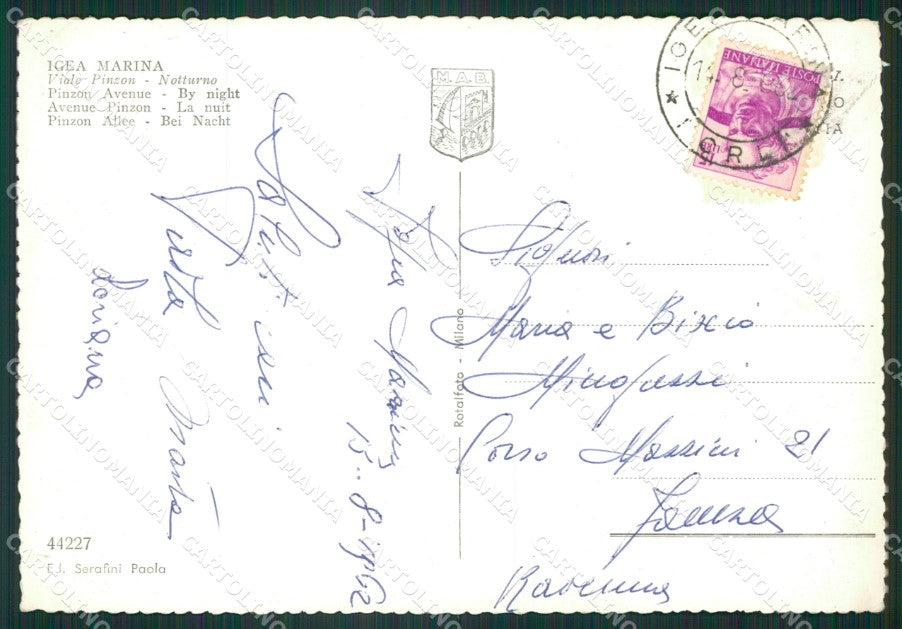 IGEA MARINA
Viale Pinzon - Notturno
Pinzon Avenue - By night
Avenue Pinzon - La nuit
Pinzon Allee - Bei Nacht
M.A.B.
POSTE ITALIANE
Igea Marina
15-8-1962
Salutissimi
Loriana
Rotalfoto - Milano
Signori
Maria e Bixio
Corso Mazzini 21
Faenza
Ravenna
44227
E.I. Serafini Paola
CARTOLINOMANIA